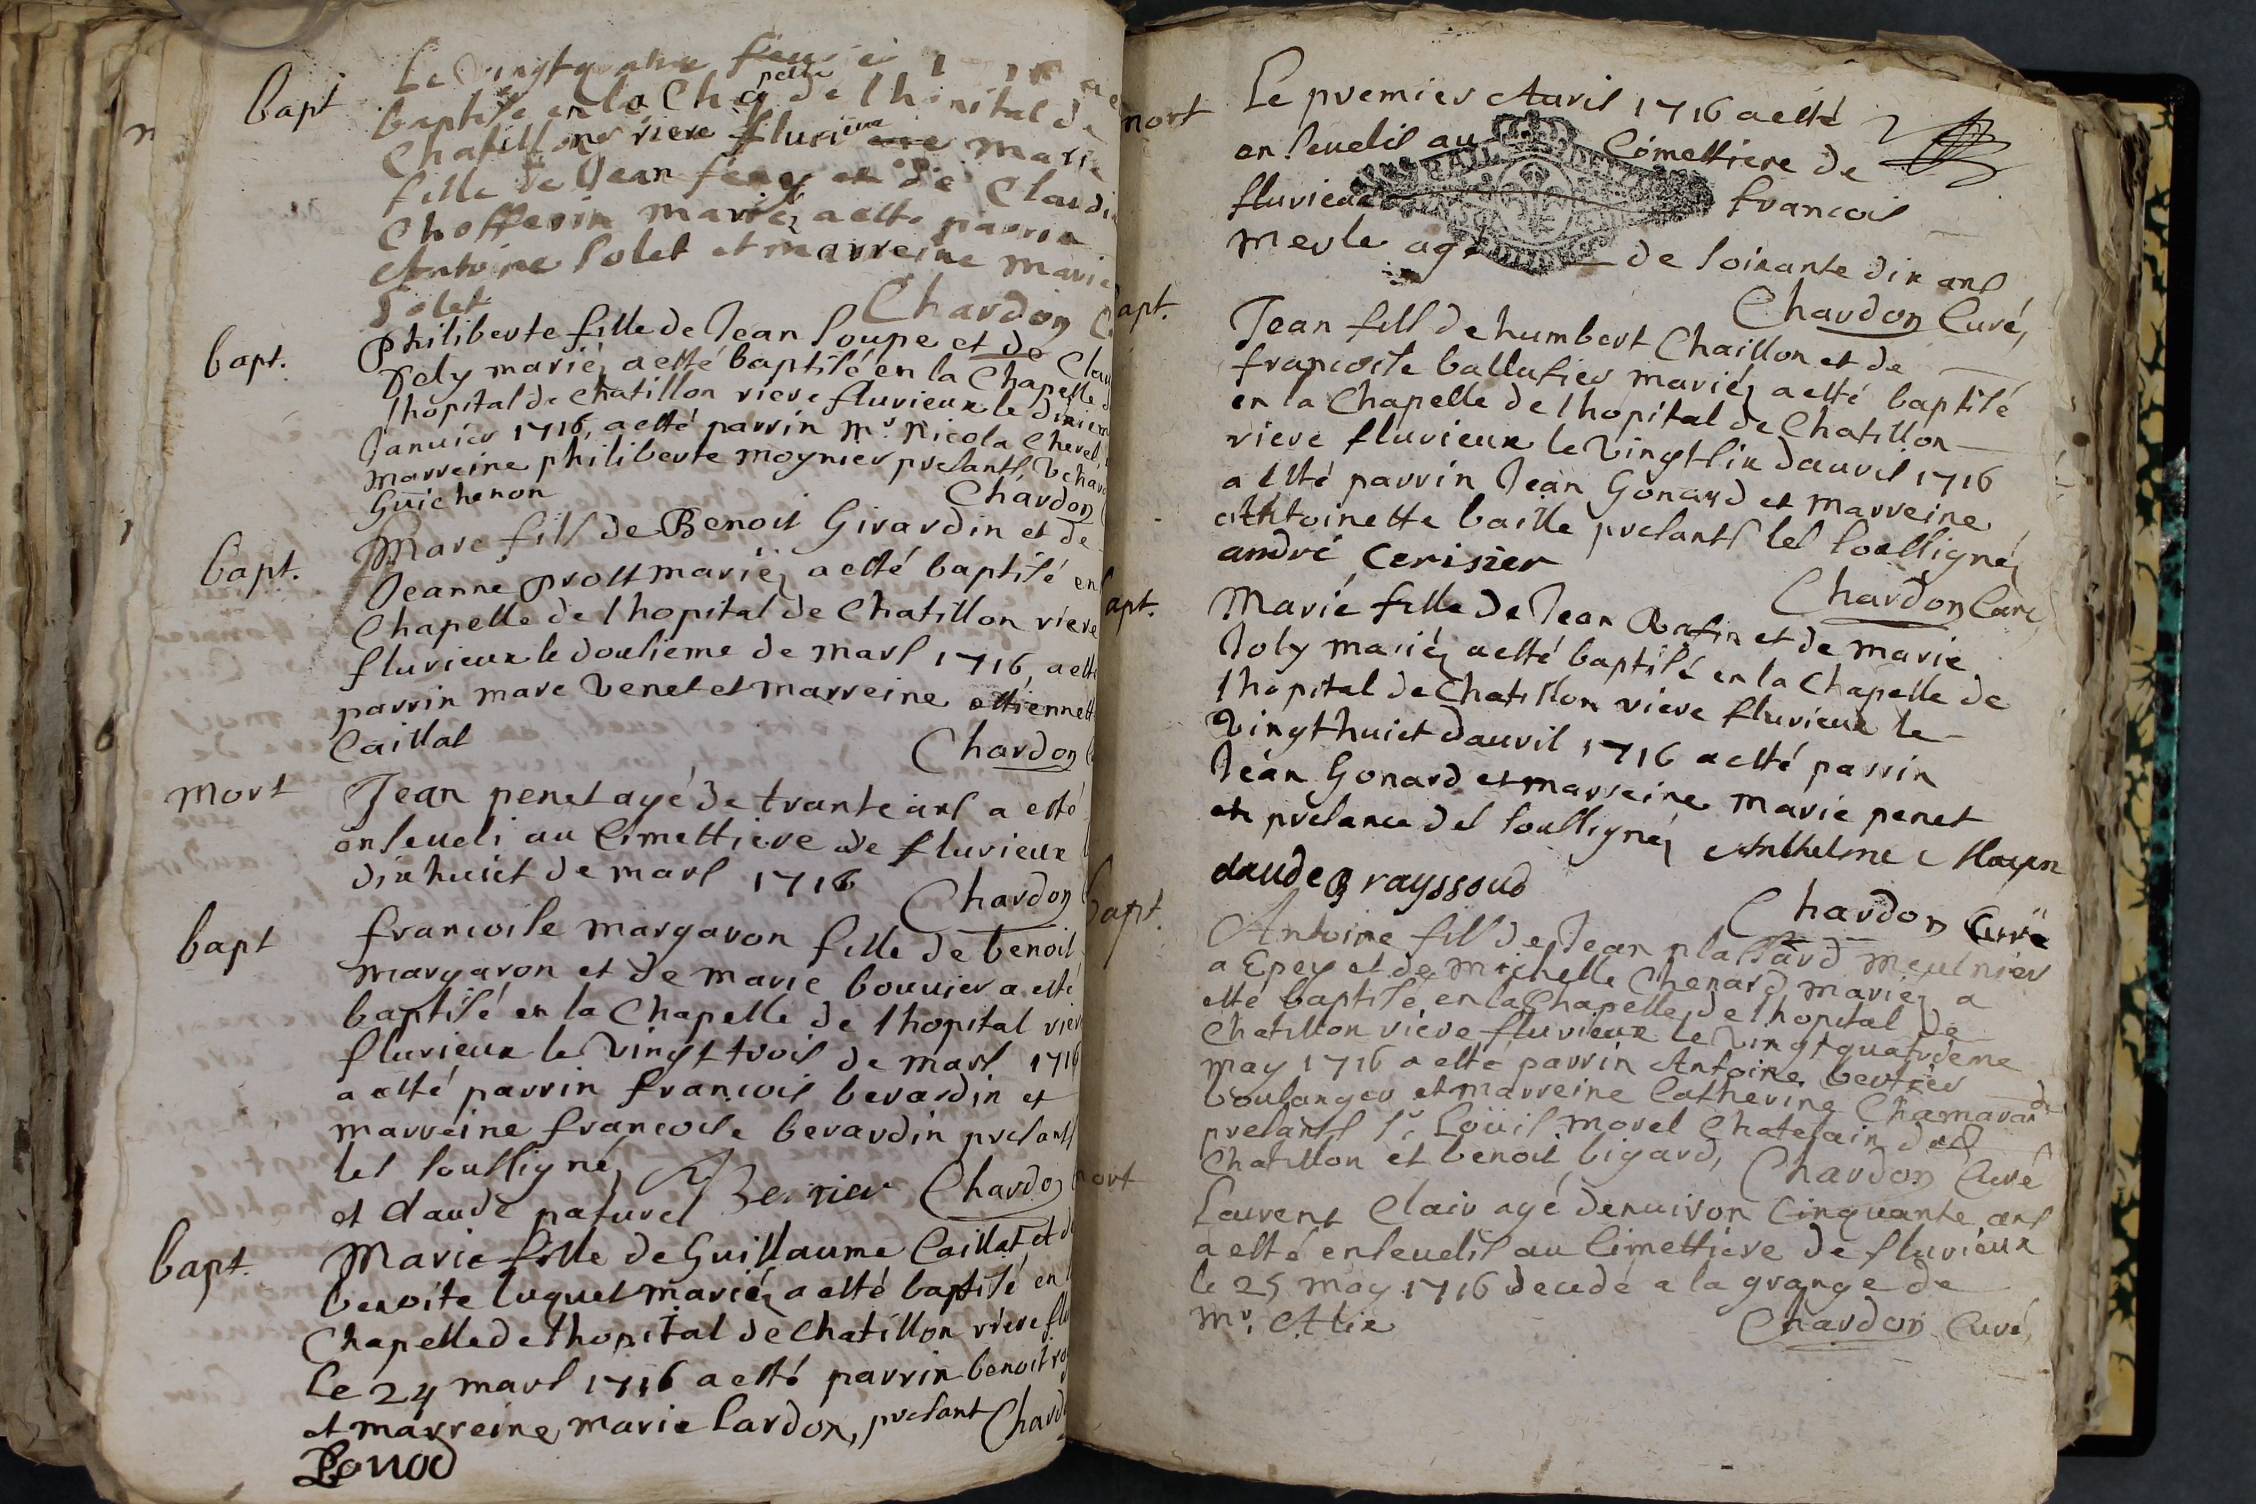 bapt
Le vingtquatre
baptisé en la Chapelle de lhopital de
Chatillon riere fluvieux Marie
fille de Jean et de Claudi
Chofferin mariéz a esté parrin
Antoine Solet et marreine marie
Solet Chardon
bapt.
Philiberte fille de Jean Soupe et de Clau
Joly mariéz a esté baptisé en la Chapelle
lhopital de Chatillon riere fluvieux le dixiem
Janvier 1716, a esté parrin mr. Nicola Chevel,
marreine philiberte moynier presants
Guichenon Chardon
bapt.
Marc fils de Benoit Girardin et de
Jeanne prost mariéz a esté baptisé en
Chapelle de lhopital de Chatillon riere
fluvieux le dousieme de mars 1716, a esté
parrin marc Venet et marreine estiennett
Caillat Chardon
mort
Jean penet agé de trante ans a esté
enseveli au Cimettiere de fluvieux
dixhuict de mars 1716 Chardon
bapt
francoise margaron fille de benoit
margaron et de marie bouvier a esté
baptisé en la Chapelle de lhopital riere
fluvieux le vingt trois de mars 1716
a esté parrin francois berardin et
marreine francoise berardin presants
les soussignéz Chardon
et claude paturel
bapt.
Marie fille de Guillaume Caillat et de
benoite luquet mariéz a esté baptisé en
Chapelle de lhopital de Chatillon riere flu
Le 24 mars 1716 a esté parrin benoit
et marreine marie Cardon, presant Chard
mort
Le premier Avril 1716 a esté
ensevelis au Cimettiere de
fluvieux francois
merle agé de soixante dix ans
Chardon Curé,
bapt.
Jean fils de humbert Chaillon et de
francoise ballufier mariéz a esté baptisé
en la Chapelle de lhopital de Chatillon
riere fluvieux le vingtsix davril 1716
a esté parrin Jean Gonard et marreine
Anthoinette baille presants les soussignéz
andré Cerisier
Chardon Curé
bapt.
Marie fille de Jean Rafin et de marie
Joly mariéz a esté baptisé en la Chapelle de
lhopital de Chatillon riere fluvieux le
vingthuict davril 1716 a esté parrin
Jean Gonard et marreine marie penet
en presance des soussignéz Anthelme
claude Brayssoud
Chardon Curé
bapt.
Antoine fils de Jean plattard meusnier
a Epey et de michelle Chenard mariéz a
esté baptisé en la Chapelle de lhopital de
Chatillon riere fluvieux le vingtquatrieme
may 1716 a esté parrin Antoine bertier
boulanger et marreine Catherine Chamarande
presants sr. Loüis morel Chatelain de
Chatillon et benoit bigard, Chardon Curé
mort
Laurent Clair agé denviron Cinquante ans
a esté ensevelis au Cimettiere de fluvieux
le 25 may 1716 decedé a la grange de
mr. Alix Chardon Curé,